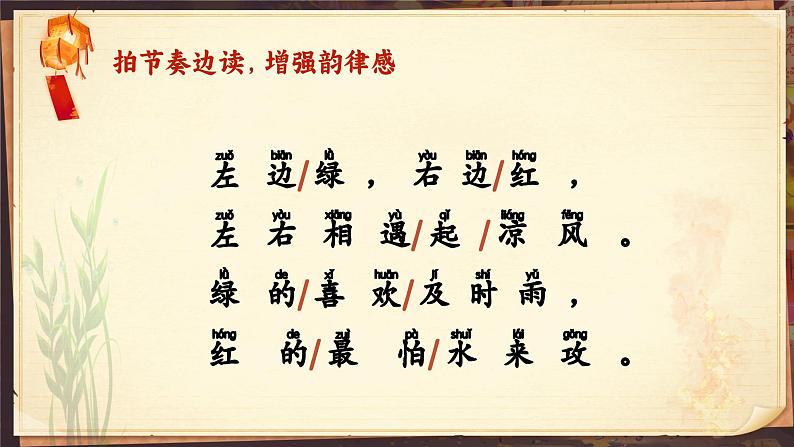 拍节奏边读，增强韵律感
zuǒ biān lǜ yòu biān hóng
左边/绿，右边/红，
zuǒ yòu xiāng yù qǐ liáng fēng
左右相遇/起/凉风。
lǜ de xǐ huān jí shí yǔ
绿的/喜欢/及时雨，
hóng de zuì pà shuǐ lái gōng
红的/最怕/水来攻。